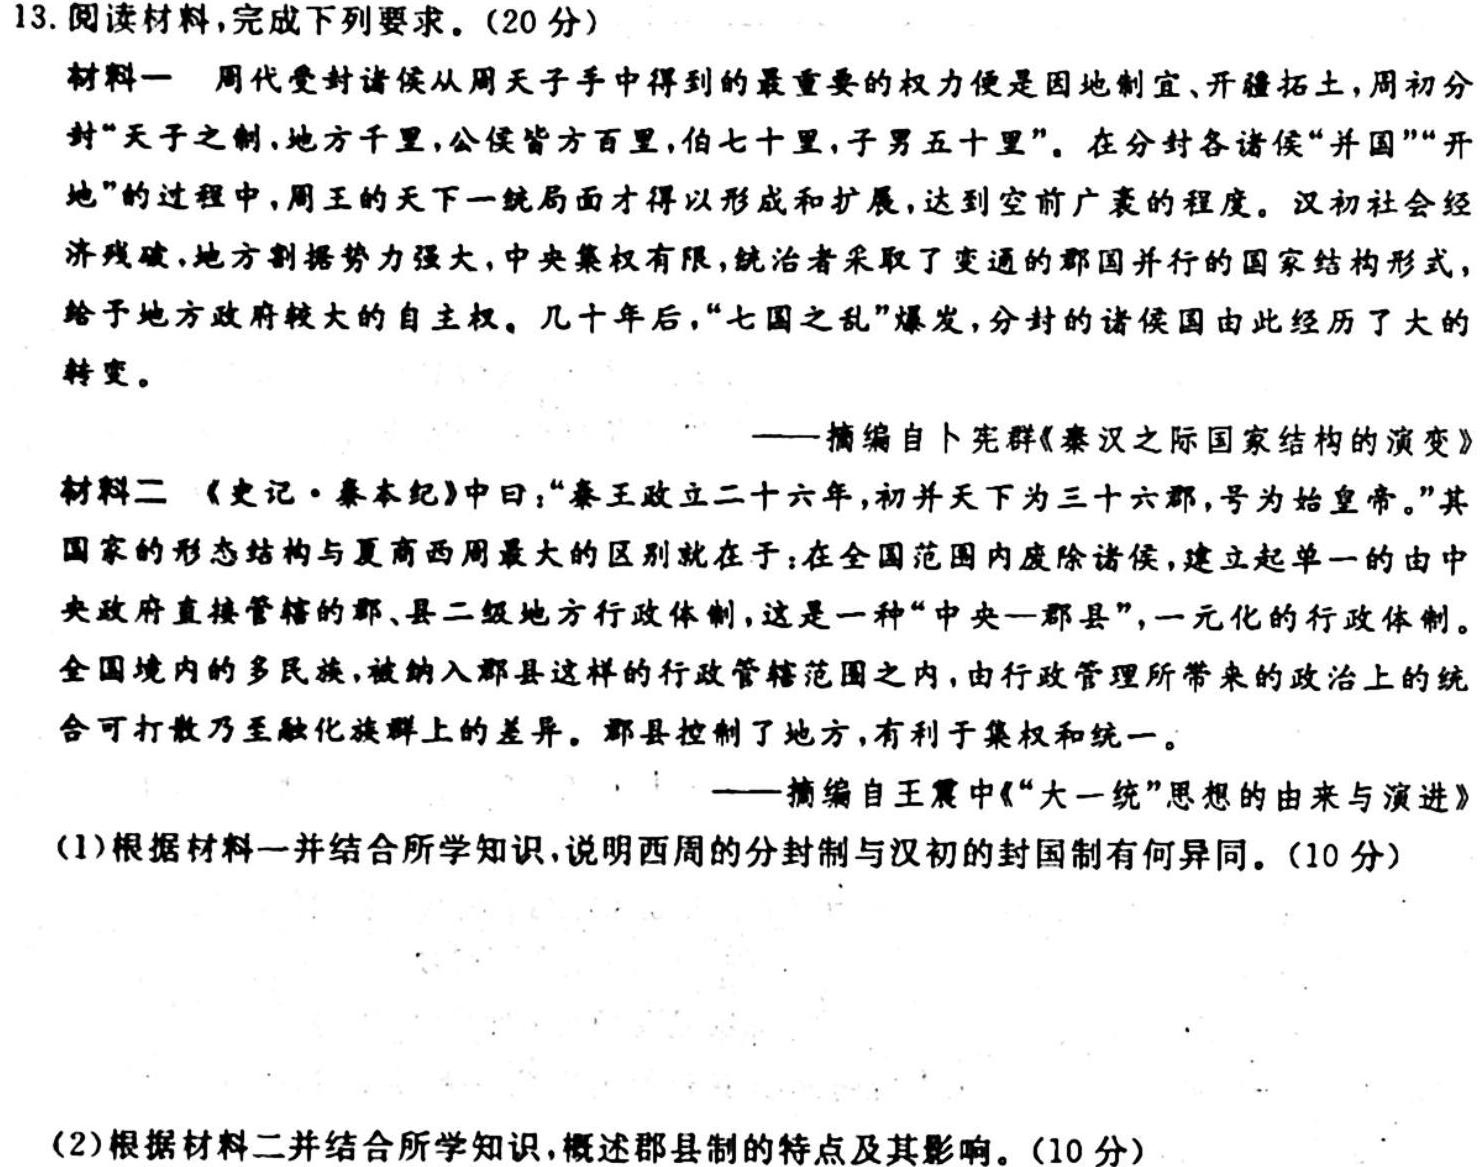 13.阅读材料,完成下列要求。(20分)
材料一 周代受封诸侯从周天子手中得到的最重要的权力便是因地制宜、开疆拓土,周初分
封“天子之制,地方千里,公侯皆方百里,伯七十里,子男五十里”。在分封各诸侯“并国”“开
地”的过程中,周王的天下一统局面才得以形成和扩展,达到空前广袤的程度。汉初社会经
济残破,地方割据势力强大,中央集权有限,统治者采取了变通的郡国并行的国家结构形式,
给予地方政府较大的自主权。几十年后,“七国之乱”爆发,分封的诸侯国由此经历了大的
转变。
——摘编自卜宪群《秦汉之际国家结构的演变》
材料二 《史记·秦本纪》中曰:“秦王政立二十六年,初并天下为三十六郡,号为始皇帝。”其
国家的形态结构与夏商西周最大的区别就在于:在全国范围内废除诸侯,建立起单一的由中
央政府直接管辖的郡、县二级地方行政体制,这是一种“中央—郡县”,一元化的行政体制。
全国境内的多民族,被纳入郡县这样的行政管辖范围之内,由行政管理所带来的政治上的统
合可打散乃至融化族群上的差异。郡县控制了地方,有利于集权和统一。
——摘编自王震中《“大一统”思想的由来与演进》
(1)根据材料一并结合所学知识,说明西周的分封制与汉初的封国制有何异同。(10分)
(2)根据材料二并结合所学知识,概述郡县制的特点及其影响。(10分)